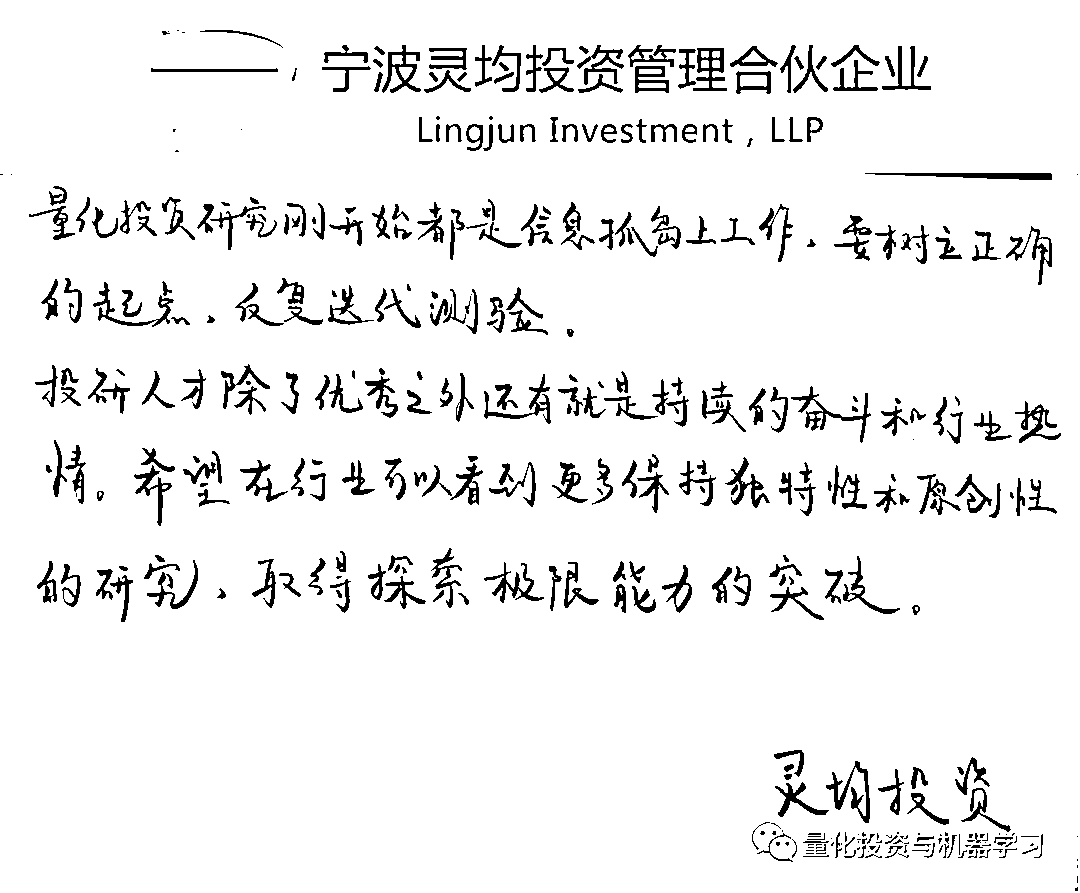 宁波灵均投资管理合伙企业
Lingjun Investment , LLP
量化投资研究刚开始都是信息孤岛上工作，要树立正确
的起点，反复迭代测验。
投研人才除了优秀之外还有就是持续的奋斗和行业热
情。希望在行业可以看到更多保持独特性和原创性
的研究，取得探索极限能力的突破。
灵均投资
量化投资与机器学习